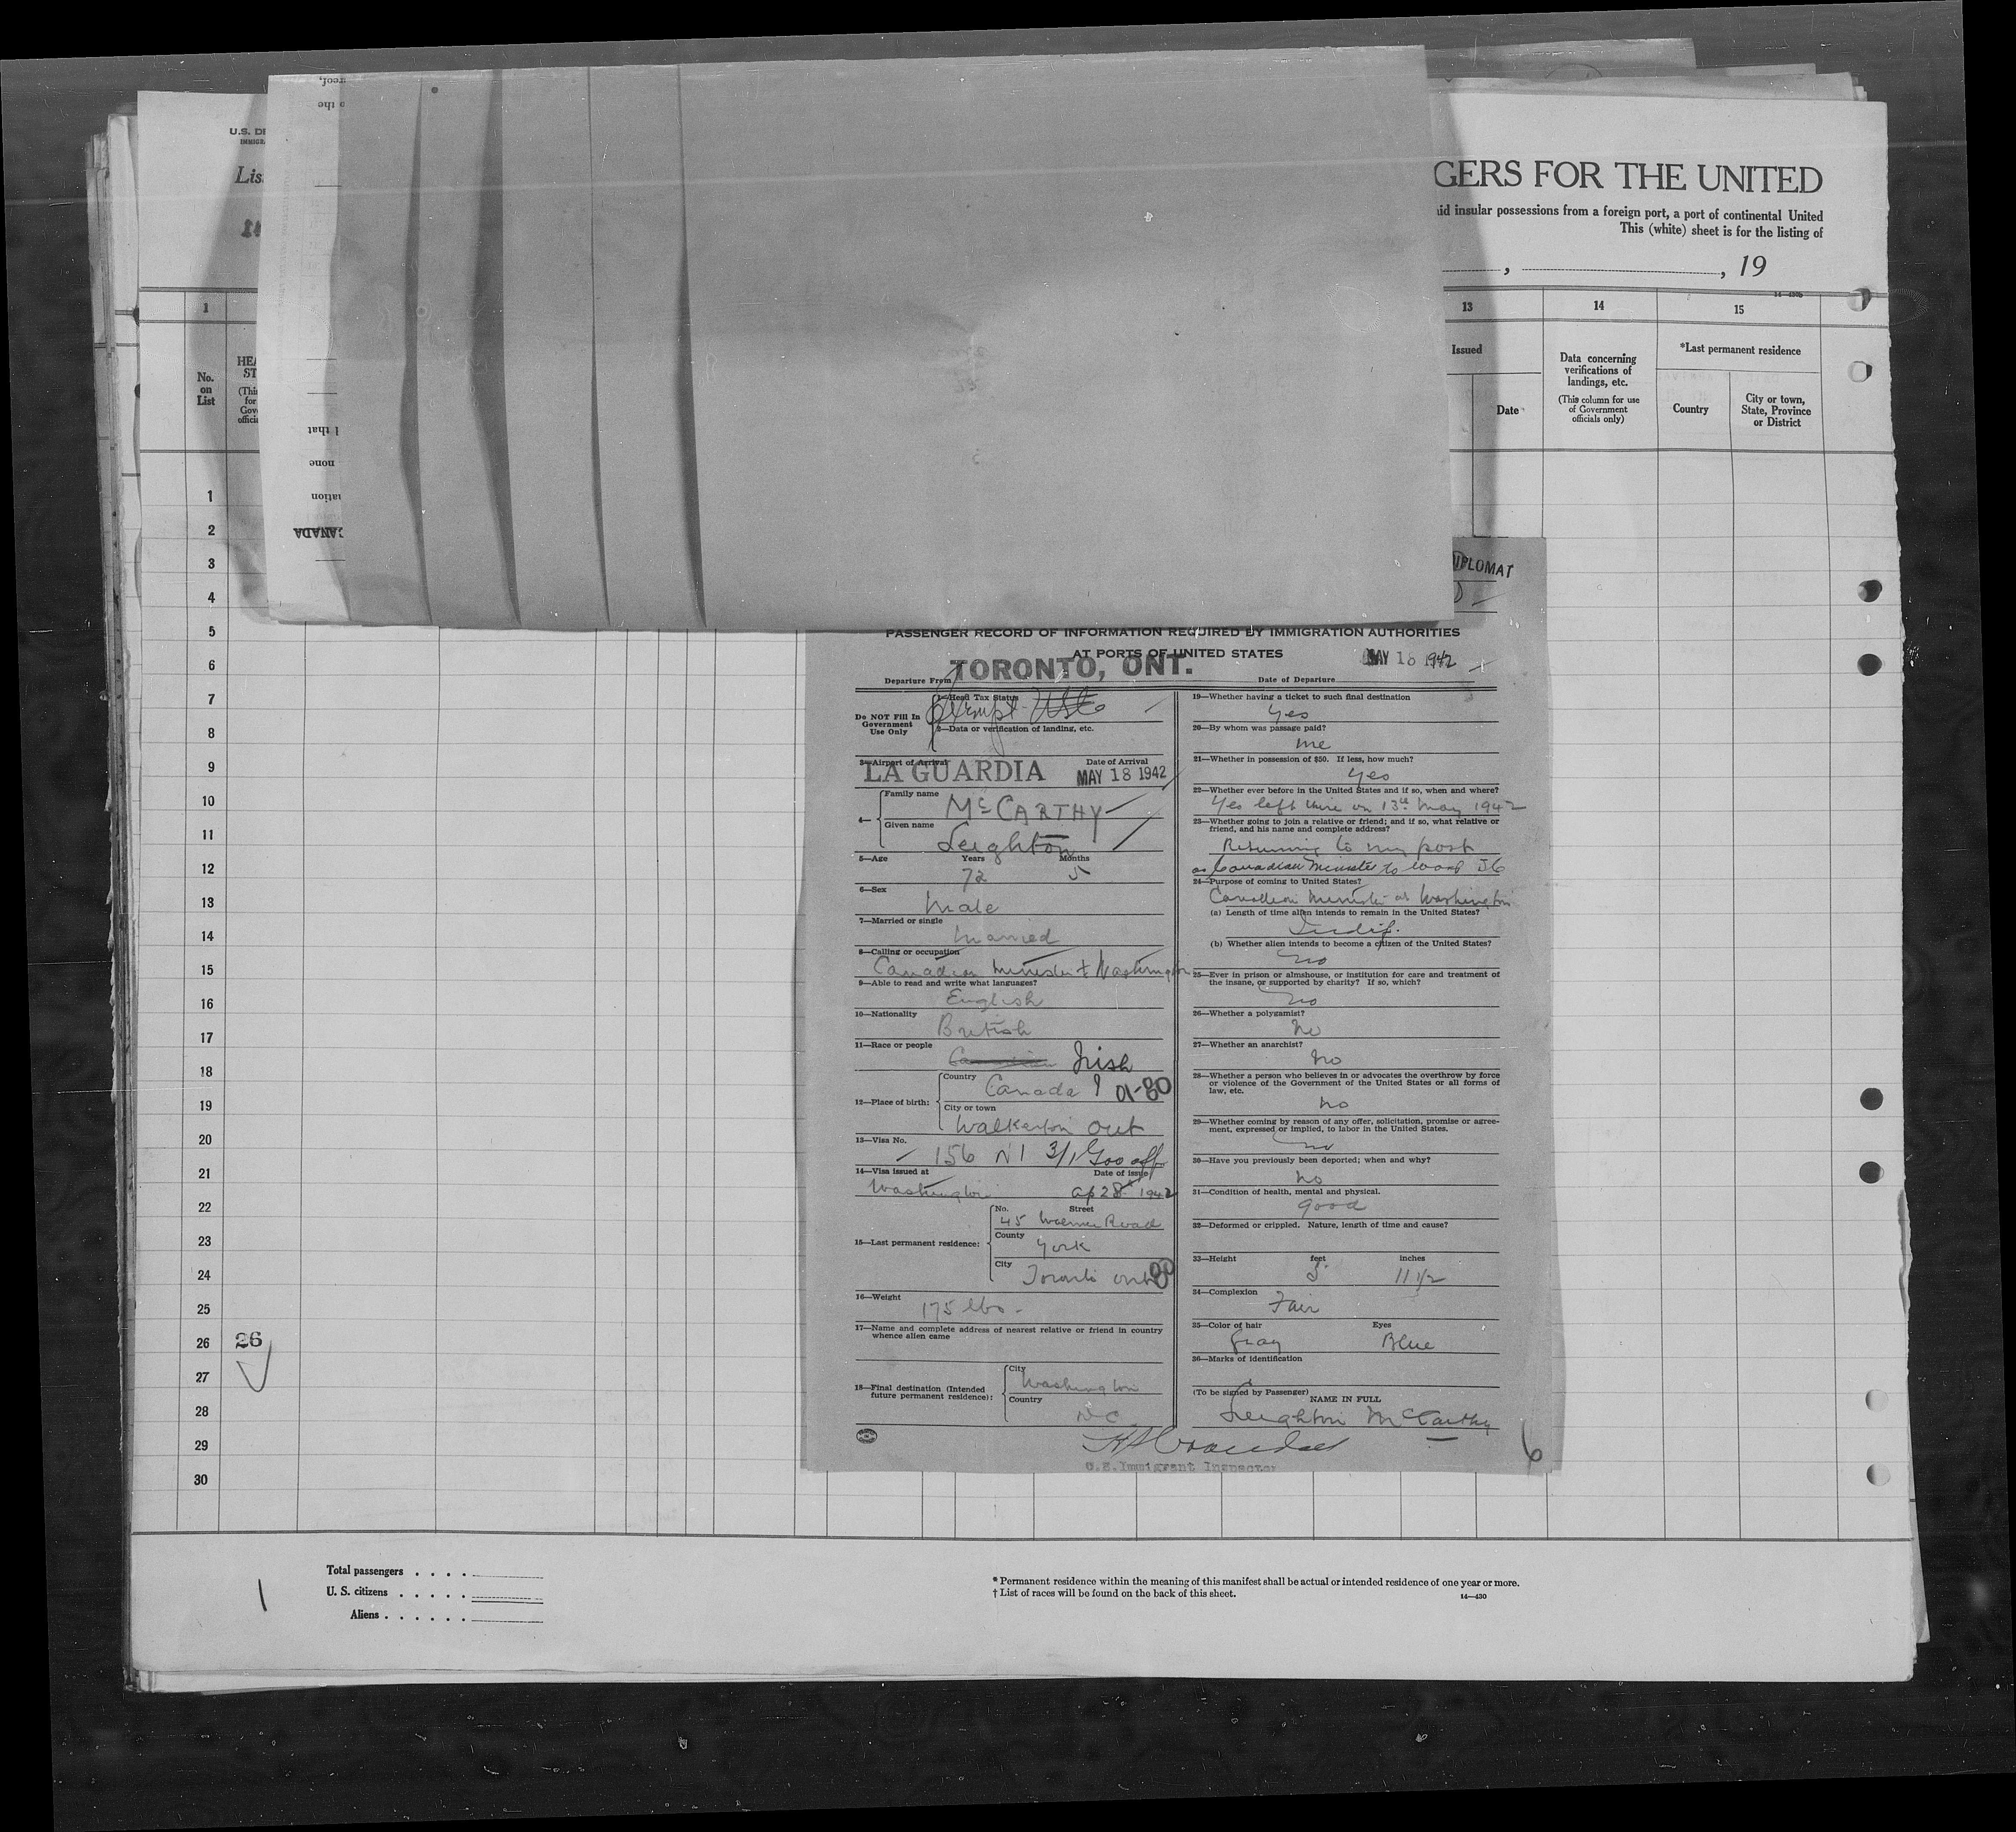 U.S. DE
IMMIGR
Lis
GERS FOR THE UNITED
aid insular possessions from a foreign port, a port of continental United
This (white) sheet is for the listing of
, , 19
1
13
14
15
No.
on
List
HEA
ST
(This
for
Gov
officia
Issued
Date
Data concerning
verifications of
landings, etc.
(This column for use
of Government
officials only)
*Last permanent residence
Country
City or town,
State, Province
or District
roof,
o the
I that
none
uation
CANADA
1
2
3
4
5
6
7
8
9
10
11
12
13
14
15
16
17
18
19
20
21
22
23
24
25
26 26
27
28
29
30
DIPLOMAT
PASSENGER RECORD OF INFORMATION REQUIRED BY IMMIGRATION AUTHORITIES
AT PORTS OF UNITED STATES
Departure From TORONTO, ONT.
Date of Departure MAY 18 1942
Do NOT Fill In
Government
Use Only
1—Head Tax Status
Exempt
2—Data or verification of landing, etc.
3—Airport of Arrival
LA GUARDIA
Date of Arrival
MAY 18 1942
4—
Family name
McCARTHY
Given name
Leighton
5—Age Years Months
72 5
6—Sex
Male
7—Married or single
Married
8—Calling or occupation
Canadian Minister to Washington
9—Able to read and write what languages?
English
10—Nationality
British
11—Race or people
Canadian Irish
12—Place of birth:
Country
Canada 01-80
City or town
Walkerton Ont
13—Visa No.
156 N1 3/1 Goo off
14—Visa issued at Date of issue
Washington Ap 28th 1942
15—Last permanent residence:
No. Street
45 Walmer Road
County
York
City
Toronto Ont 80
16—Weight
175 lbs-
17—Name and complete address of nearest relative or friend in country
whence alien came
18—Final destination (Intended
future permanent residence):
City
Washington
Country
DC
19—Whether having a ticket to such final destination
Yes
20—By whom was passage paid?
me
21—Whether in possession of $50. If less, how much?
Yes
22—Whether ever before in the United States and if so, when and where?
Yes left there on 13th May 1942
23—Whether going to join a relative or friend; and if so, what relative or
friend, and his name and complete address?
Returning to my post
as Canadian Minister to
24—Purpose of coming to United States?
Canadian Minister at Washington
(a) Length of time alien intends to remain in the United States?
Indef.
(b) Whether alien intends to become a citizen of the United States?
no
25—Ever in prison or almshouse, or institution for care and treatment of
the insane, or supported by charity? If so, which?
no
26—Whether a polygamist?
No
27—Whether an anarchist?
no
28—Whether a person who believes in or advocates the overthrow by force
or violence of the Government of the United States or all forms of
law, etc.
no
29—Whether coming by reason of any offer, solicitation, promise or agree-
ment, expressed or implied, to labor in the United States.
no
30—Have you previously been deported; when and why?
no
31—Condition of health, mental and physical.
good
32—Deformed or crippled. Nature, length of time and cause?
33—Height feet inches
5 11 1/2
34—Complexion
Fair
35—Color of hair Eyes
Gray Blue
36—Marks of identification
(To be signed by Passenger)
NAME IN FULL
Leighton McCarthy
U.S. Immigrant Inspector
6
Total passengers . . . .
U. S. citizens . . . . .
Aliens . . . . . .
* Permanent residence within the meaning of this manifest shall be actual or intended residence of one year or more.
† List of races will be found on the back of this sheet.
14—430